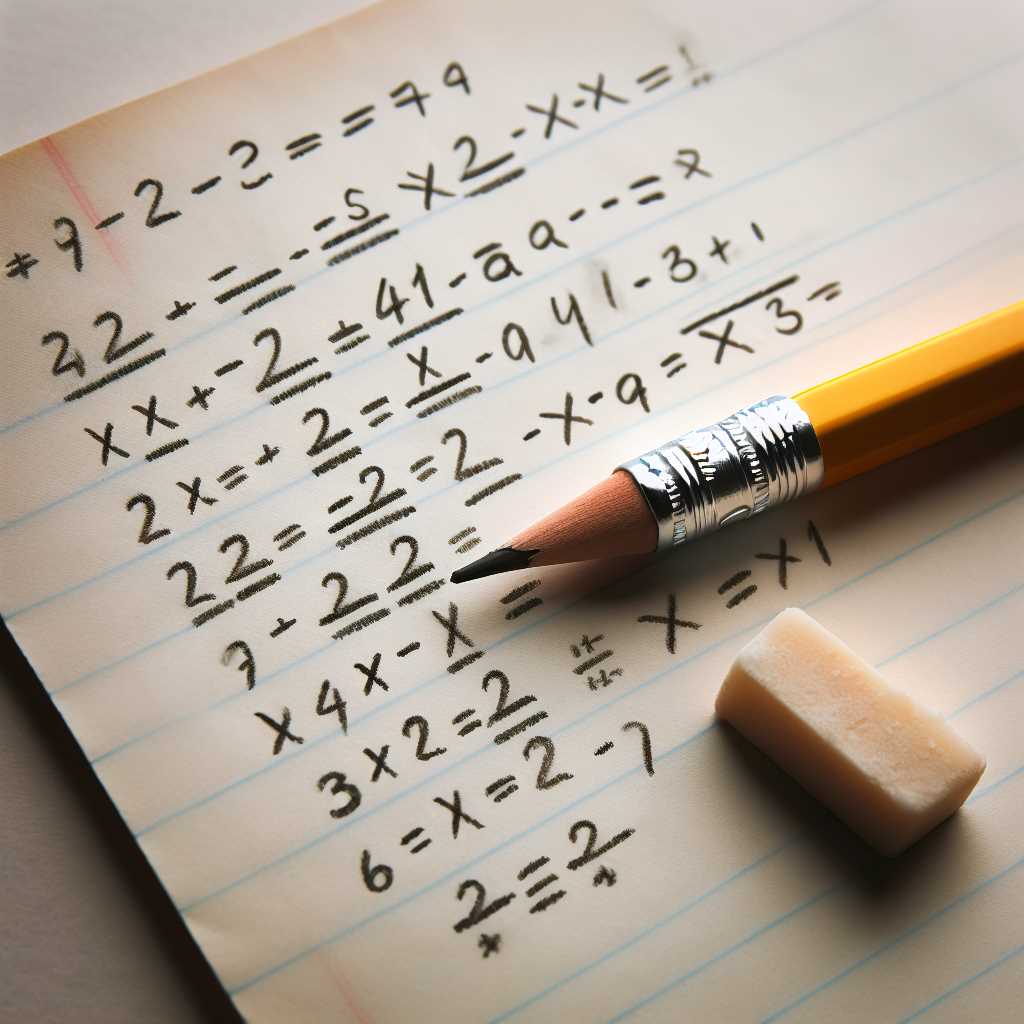 + 9 - 2 - 2 = = 7 9
2 2 + = - - 5 x 2 - x - x =
x x + - 2 ÷ 41 - a a - - = x
2 x = + 2 = x - a 4 1 - 3 + 1
2 2 = - 2 = 2 - x - 9 = x 3 =
7 + 2 2 =
x 4 x - x = x = x 1
3 x 2 = 2
6 = x = 2 - 7
2 = 2